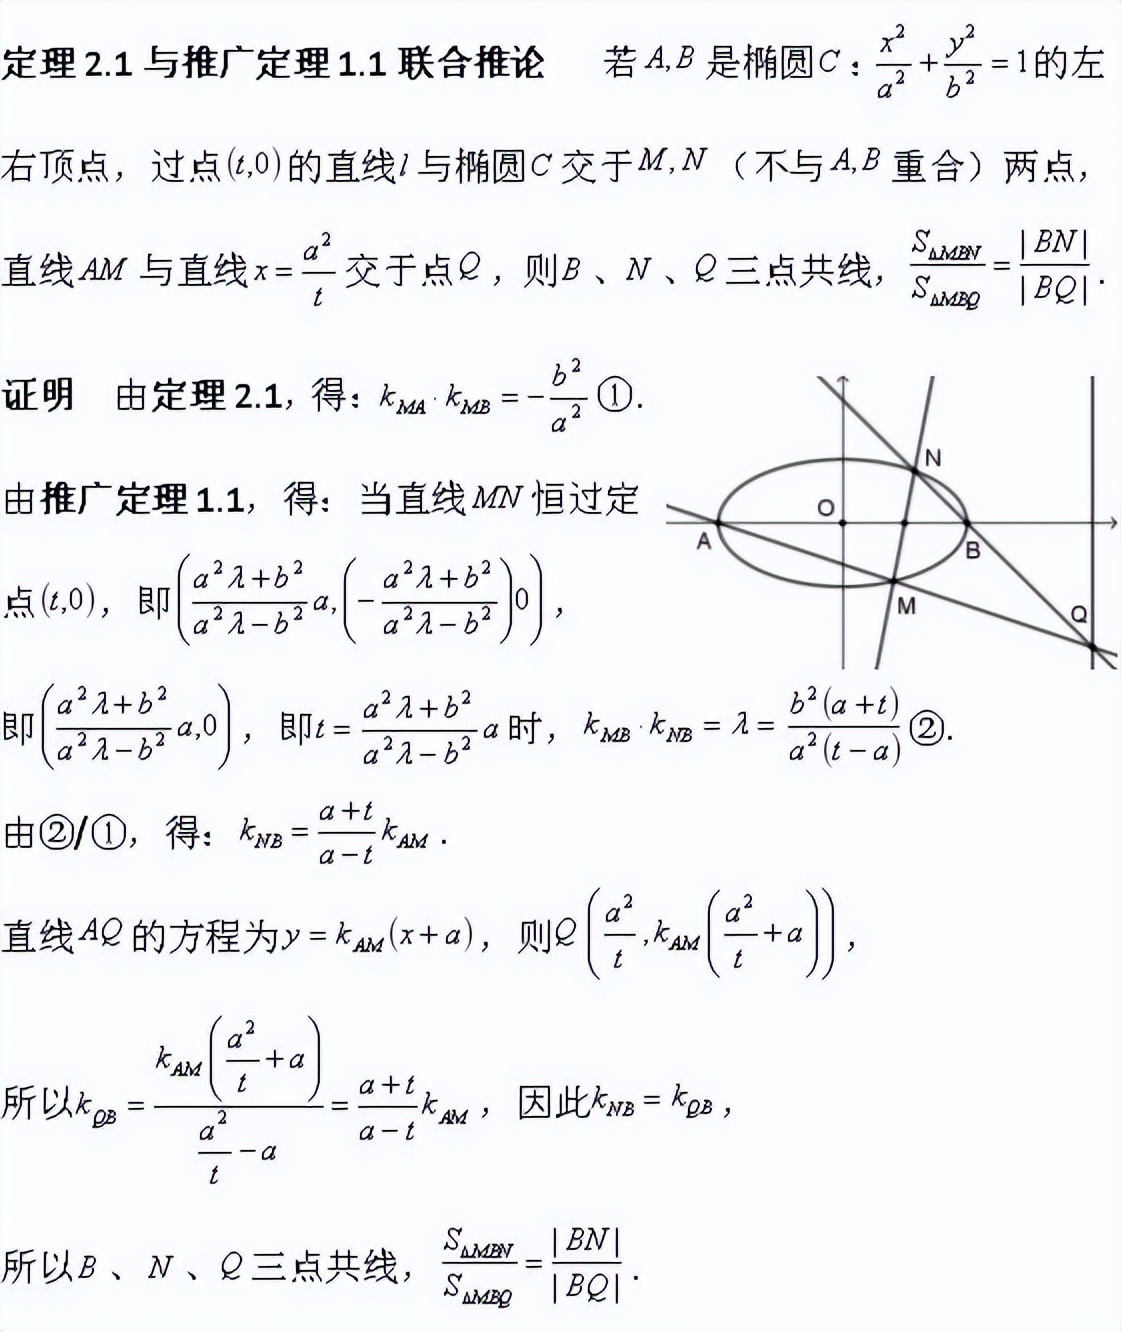 定理2.1与推广定理1.1联合推论 若A,B是椭圆C：x²/a²+y²/b²=1的左
右顶点，过点(t,0)的直线l与椭圆C交于M,N（不与A,B重合）两点，
直线AM与直线x=a²/t交于点Q，则B、N、Q三点共线，S△MBN/S△MBQ=|BN|/|BQ|.
证明 由定理2.1，得：k_MA·k_MB=-b²/a²①.
由推广定理1.1，得：当直线MN恒过定
点(t,0)，即((a²λ+b²)/(a²λ-b²)a,(-(a²λ+b²)/(a²λ-b²))0)，
即((a²λ+b²)/(a²λ-b²)a,0)，即t=(a²λ+b²)/(a²λ-b²)a时，k_MB·k_NB=λ=b²(a+t)/a²(t-a)②.
由②/①，得：k_NB=(a+t)/(a-t)k_AM.
直线AQ的方程为y=k_AM(x+a)，则Q(a²/t,k_AM(a²/t+a))，
所以k_QB=k_AM(a²/t+a)/(a²/t-a)=(a+t)/(a-t)k_AM，因此k_NB=k_QB，
所以B、N、Q三点共线，S△MBN/S△MBQ=|BN|/|BQ|.
N
O
A
B
M
Q